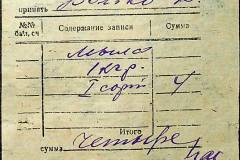 принять
№№ Содержание записи Сумма
б/п, сч
мыла
1 кгр.
I сорт 4
Итого
сумма четыре